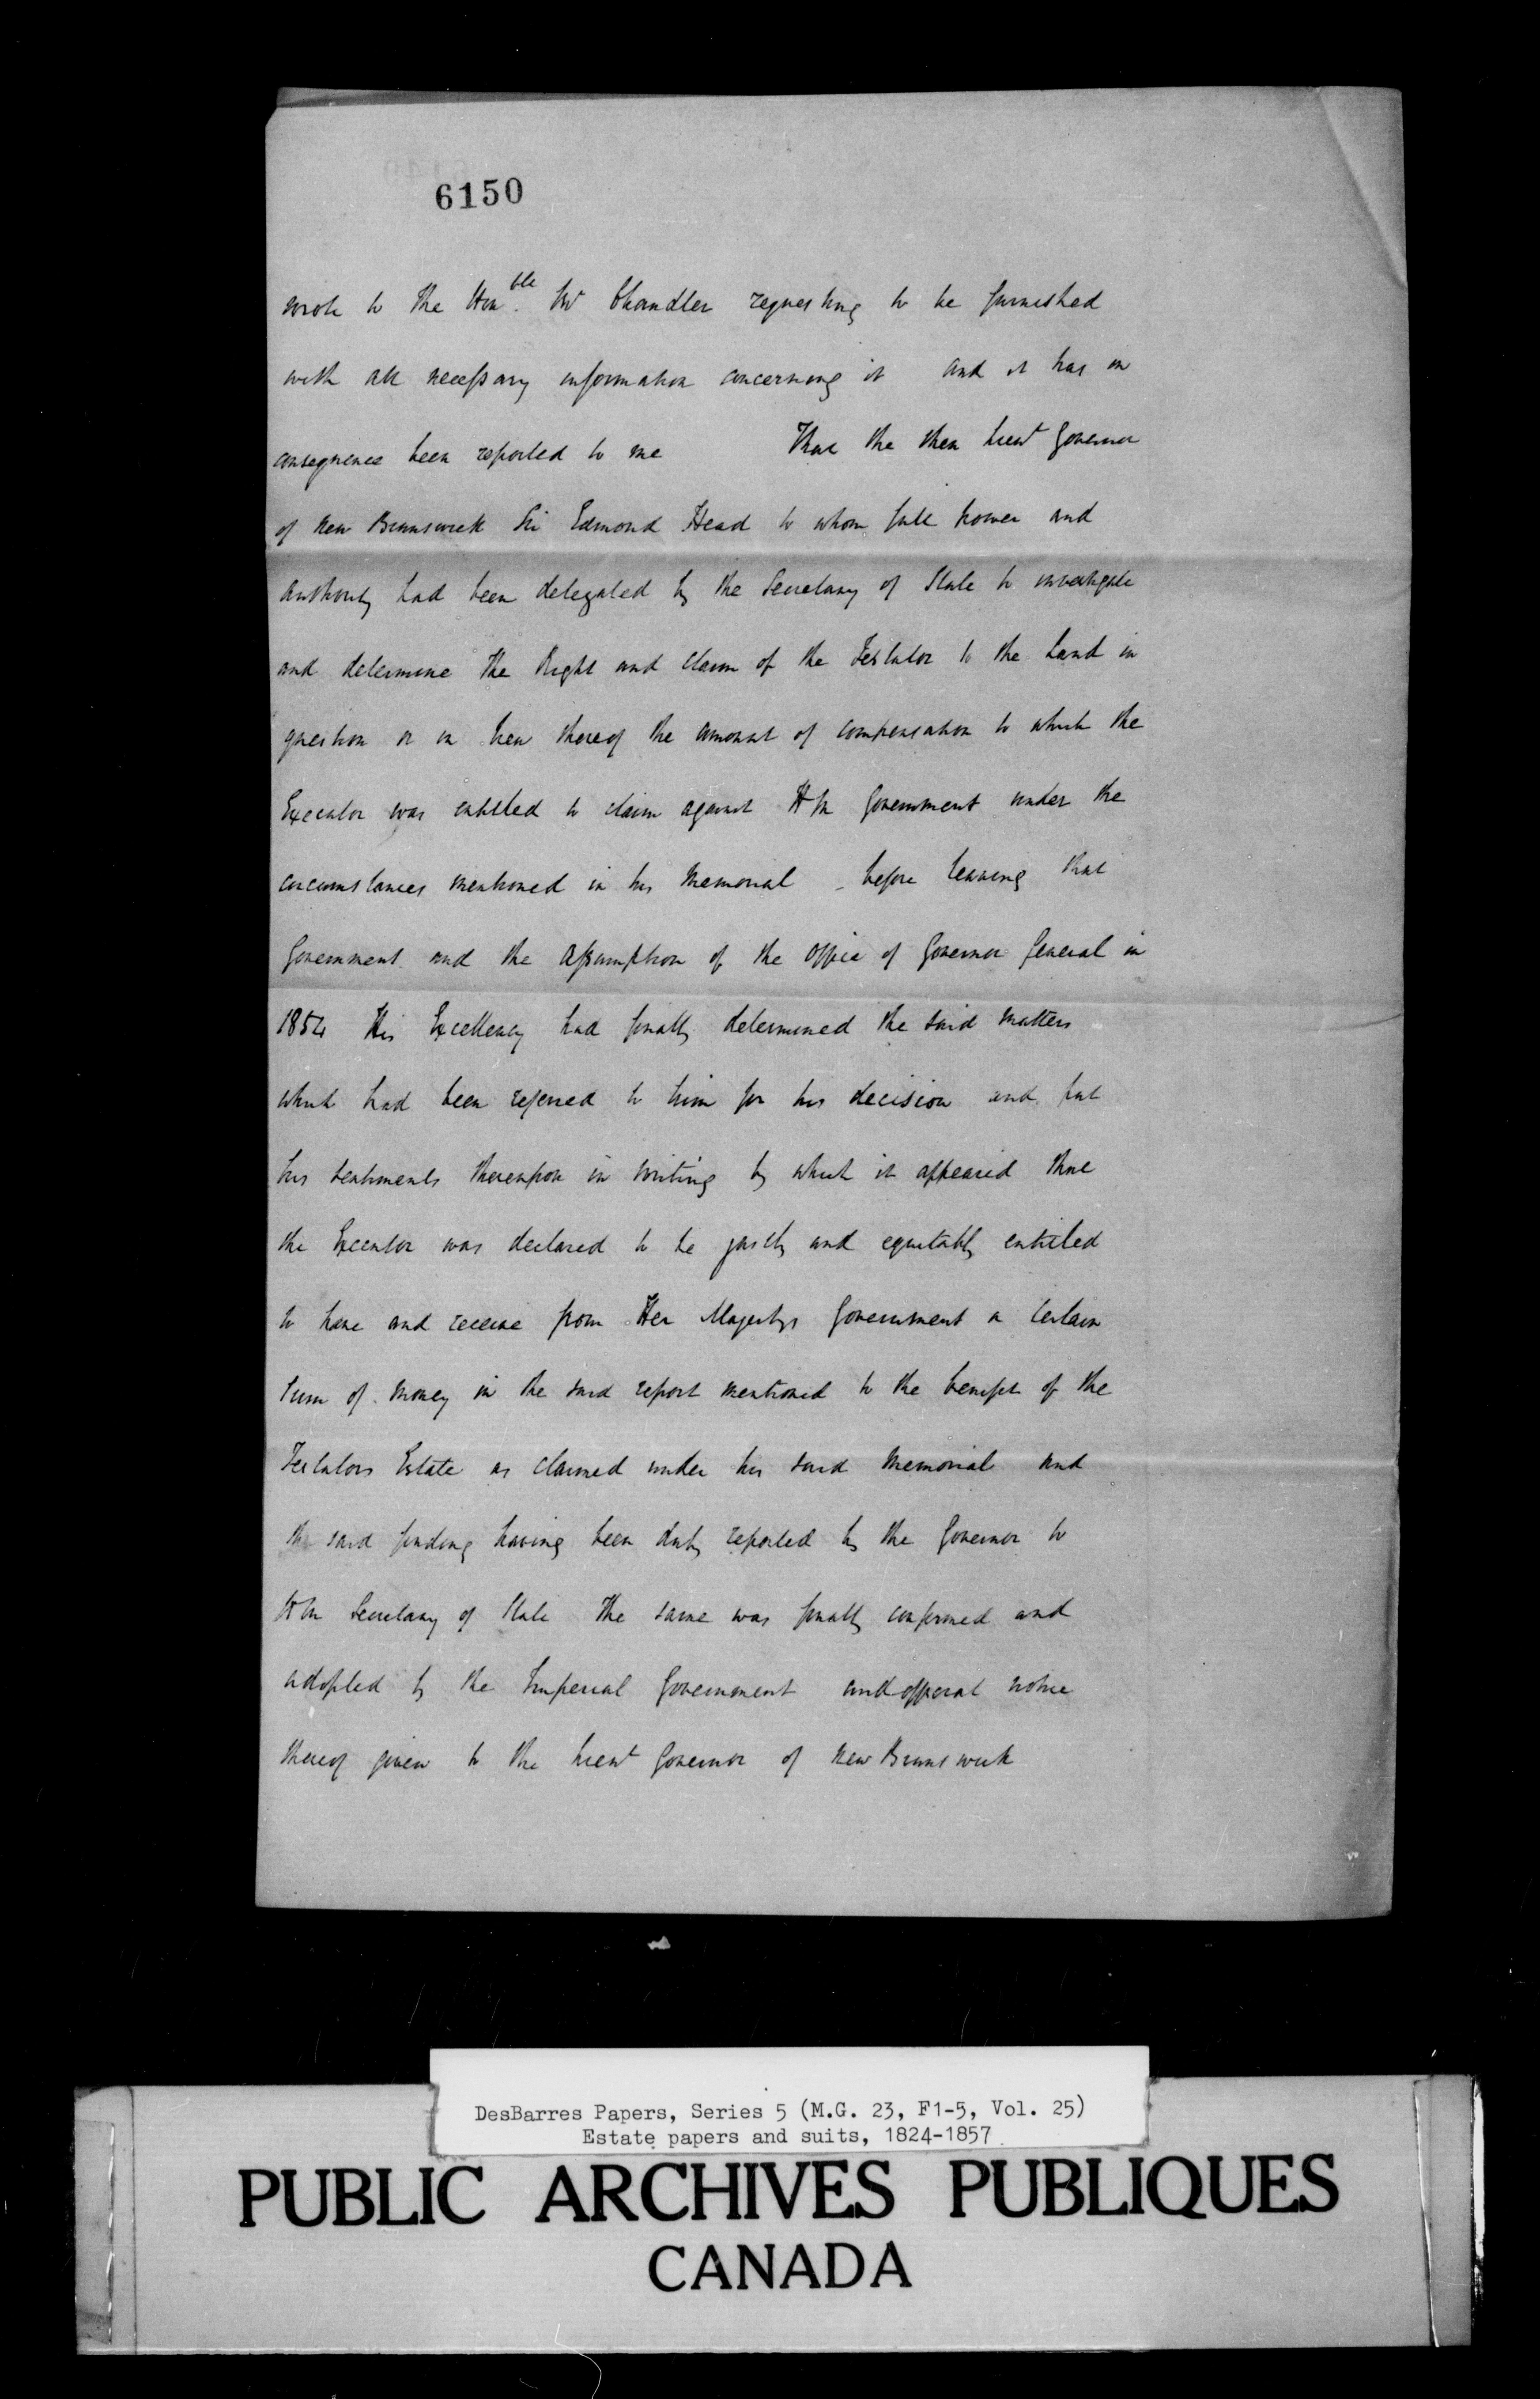 6150
wrote to the Hon.ble Mr Chandler requesting to be furnished
with all necessary information concerning it and it has in
consequence been reported to me That the then Lieut Governor
of New Brunswick Sir Edmond Head to whom full power and
authority had been delegated by the Secretary of State to investigate
and determine the Right and claim of the Testator to the Land in
question or in lieu thereof the amount of compensation to which the
Executor was entitled to claim against H M Government under the
circumstances mentioned in his Memorial - before leaving that
Government and the assumption of the office of Governor General in
1854 His Excellency had finally determined the said matters
which had been referred to him for his decision and put
his sentiments thereupon in writing by which it appeared that
the Executor was declared to be justly and equitably entitled
to have and receive from Her Majestys Government a certain
sum of money in the said report mentioned to the benefit of the
Testators Estate as claimed under his said Memorial and
the said finding having been duly reported by the Governor to
H M Secretary of State The same was finally confirmed and
adopted by the Imperial Government and official notice
thereof given to the Lieut Governor of New Brunswick
DesBarres Papers, Series 5 (M.G. 23, F1-5, Vol. 25)
Estate papers and suits, 1824-1857
PUBLIC ARCHIVES PUBLIQUES
CANADA